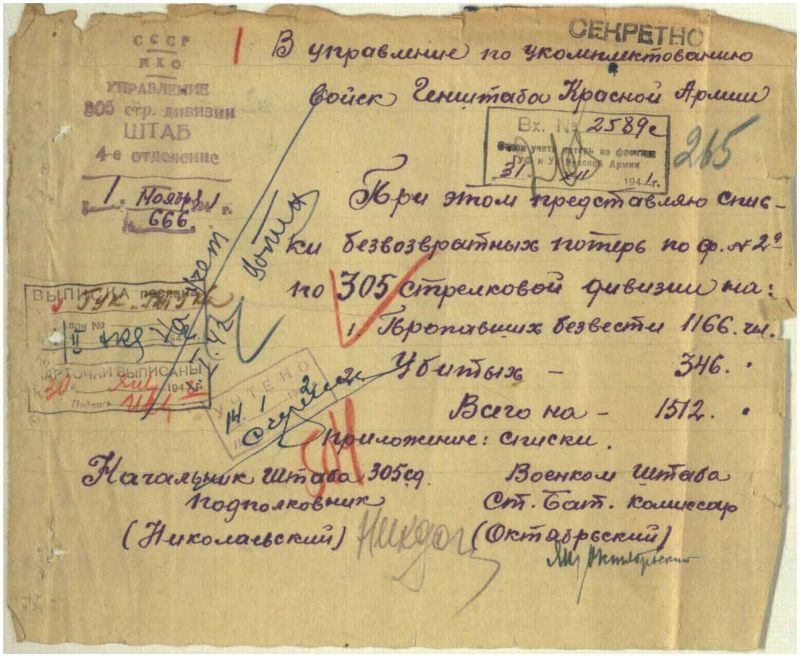 СЕКРЕТНО
СССР
НКО
УПРАВЛЕНИЕ
305 стр. дивизии
ШТАБ
4-е отделение
1 Ноября
666.
В управление по укомплектованию
войск Генштаба Красной Армии
Вх. № 2589с
31 XII 1941г.
265
При этом представляю спис-
ки безвозвратных потерь по ф. №2
по 305 стрелковой дивизии на:
1. Пропавших безвести 1166. чл.
2. Убитых – 346.
Всего на – 1512.
приложение: списки.
ВЫПИСКА послана
при №
КАРТОЧКИ ВЫПИСАНЫ
30
Подпись
УЧТЕНО
14. 1
Начальник Штаба 305сд.
подполковник
(Николаевский)
Военком Штаба
Ст. Бат. комиссар
(Октябрьский)
Октябрьский